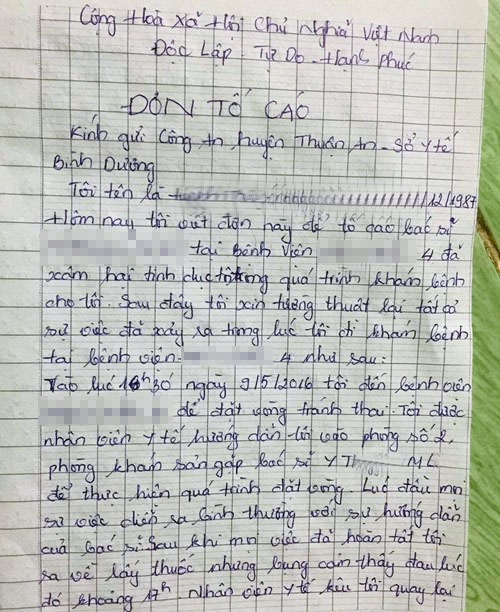 Cộng Hoà Xã Hội Chủ Nghĩa Việt Nam
Độc Lập - Tự Do - Hạnh Phúc
ĐƠN TỐ CÁO
Kính gửi Công An huyện Thuận An - Sở Y tế
Bình Dương
Tôi tên là 12/1987
Hôm nay tôi viết đơn này để tố cáo bác sĩ
tại bệnh viện 4 đã
xâm hại tình dục tôi trong quá trình khám bệnh
cho tôi. Sau đây tôi xin tường thuật lại tất cả
sự việc đã xảy ra trong lúc tôi đi khám bệnh
tại bệnh viện 4 như sau:
Vào lúc 16h30 ngày 9/5/2016 tôi đến bệnh viện
để đặt vòng tránh thai. Tôi được
nhân viên y tế hướng dẫn tôi vào phòng số 2,
phòng khám sản gặp bác sĩ YT ML
để thực hiện quá trình đặt vòng. Lúc đầu mọi
sự việc diễn ra bình thường với sự hướng dẫn
của bác sĩ. Sau khi mọi việc đã hoàn tất tôi
ra về lấy thuốc nhưng bụng cảm thấy đau lúc
đó khoảng 17h Nhân viên y tế kêu tôi quay lại